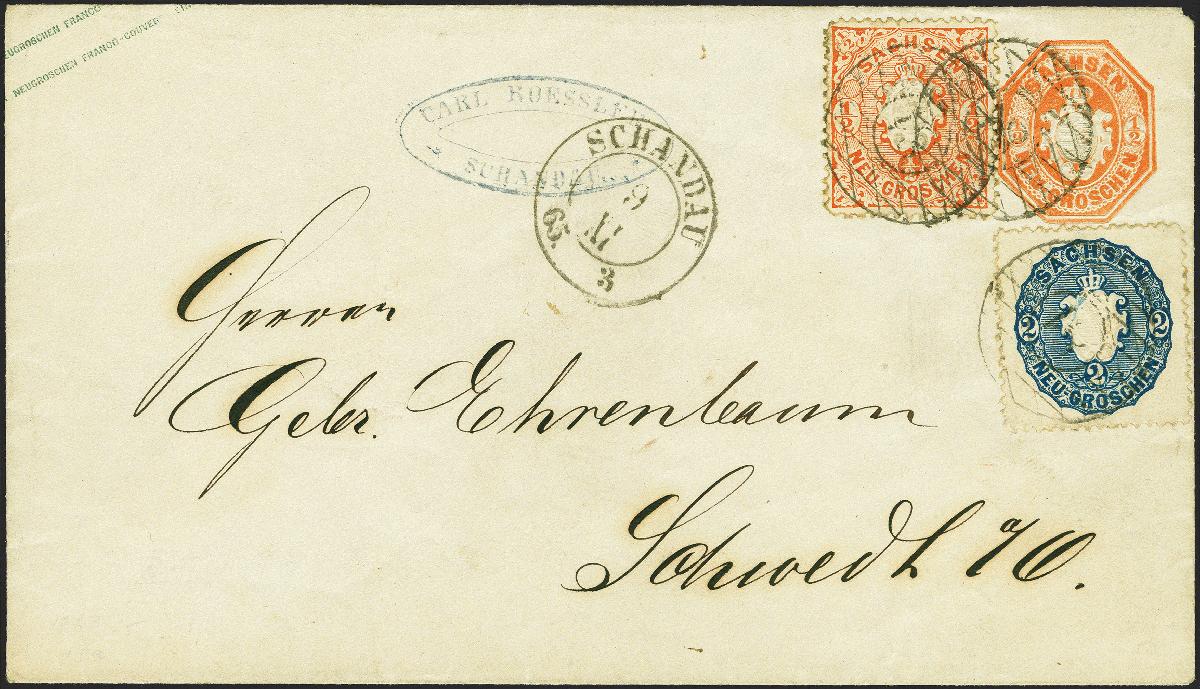 NEUGROSCHEN FRANCO
NEUGROSCHEN FRANCO-COUVERT
CARL ROESSLER
SCHANDAU
SCHANDAU
9
XI
65.
3
SACHSEN
1/2
1/2
1/2
NEU-GROSCHEN
SACHSEN
1/2
NEU-GROSCHEN
SACHSEN
2
2
2
NEU-GROSCHEN
Herren
Gebr. Ehrenbaum
Schwedt a/O.